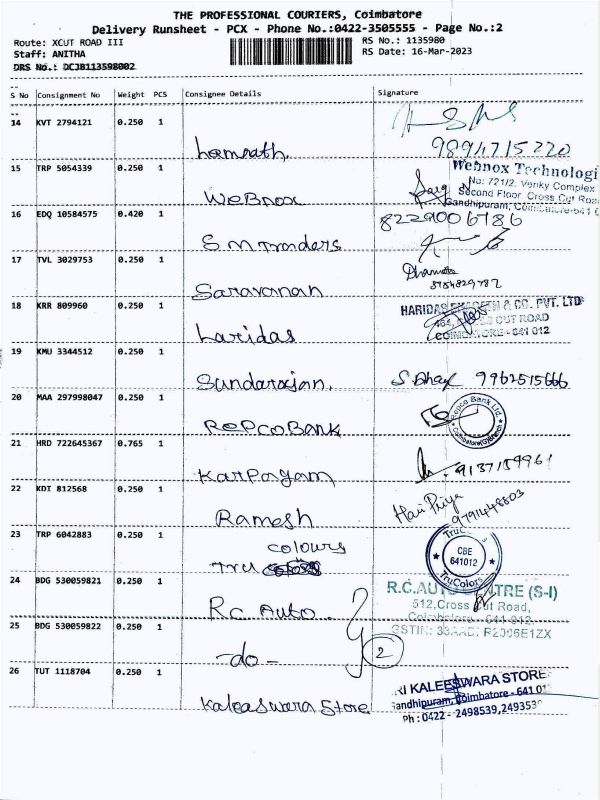 THE PROFESSIONAL COURIERS, Coimbatore
Delivery Runsheet - PCX - Phone No.:0422-3505555 - Page No.:2
Route: XCUT ROAD III
RS No.: 1135980
Staff: ANITHA
RS Date: 16-Mar-2023
DRS No.: DCJB113598002
S No Consignment No Weight PCS Consignee Details Signature
14 KVT 2794121 0.250 1
9894715220
15 TRP 5054339 0.250 1
Webnox Technologi
No: 721/2, Venky Complex
Second Floor, Cross Cut Road
Gandhipuram, Coimbatore-641 0
Webnox
16 EDQ 10584575 0.420 1
8229006786
S M Traders
17 TVL 3029753 0.250 1
Saravanan
18 KRR 809960 0.250 1
HARIDAS & CO. PVT. LTD
464, CROSS CUT ROAD
COIMBATORE - 641 012
Haridas
19 KMU 3344512 0.250 1
Sundarajan.
9962515666
20 MAA 297998047 0.250 1
Repco Bank Ltd
Repco Bank
21 HRD 722645367 0.765 1
9137159961
Karpagam
22 KDI 812568 0.250 1
Hari Priya
9791448803
Ramesh
23 TRP 6042883 0.250 1
colours
Tru
TruColors
CBE
641012
TruColors
24 BDG 530059821 0.250 1
R.C.AUTO CENTRE (S-I)
512,Cross Cut Road,
Coimbatore - 641 012.
Rc Auto.
25 BDG 530059822 0.250 1
-do-
2
26 TUT 1118704 0.250 1
SRI KALEESWARA STORE
Gandhipuram, Coimbatore - 641 01
Ph : 0422 - 2498539, 249353
Kaleaswara Store